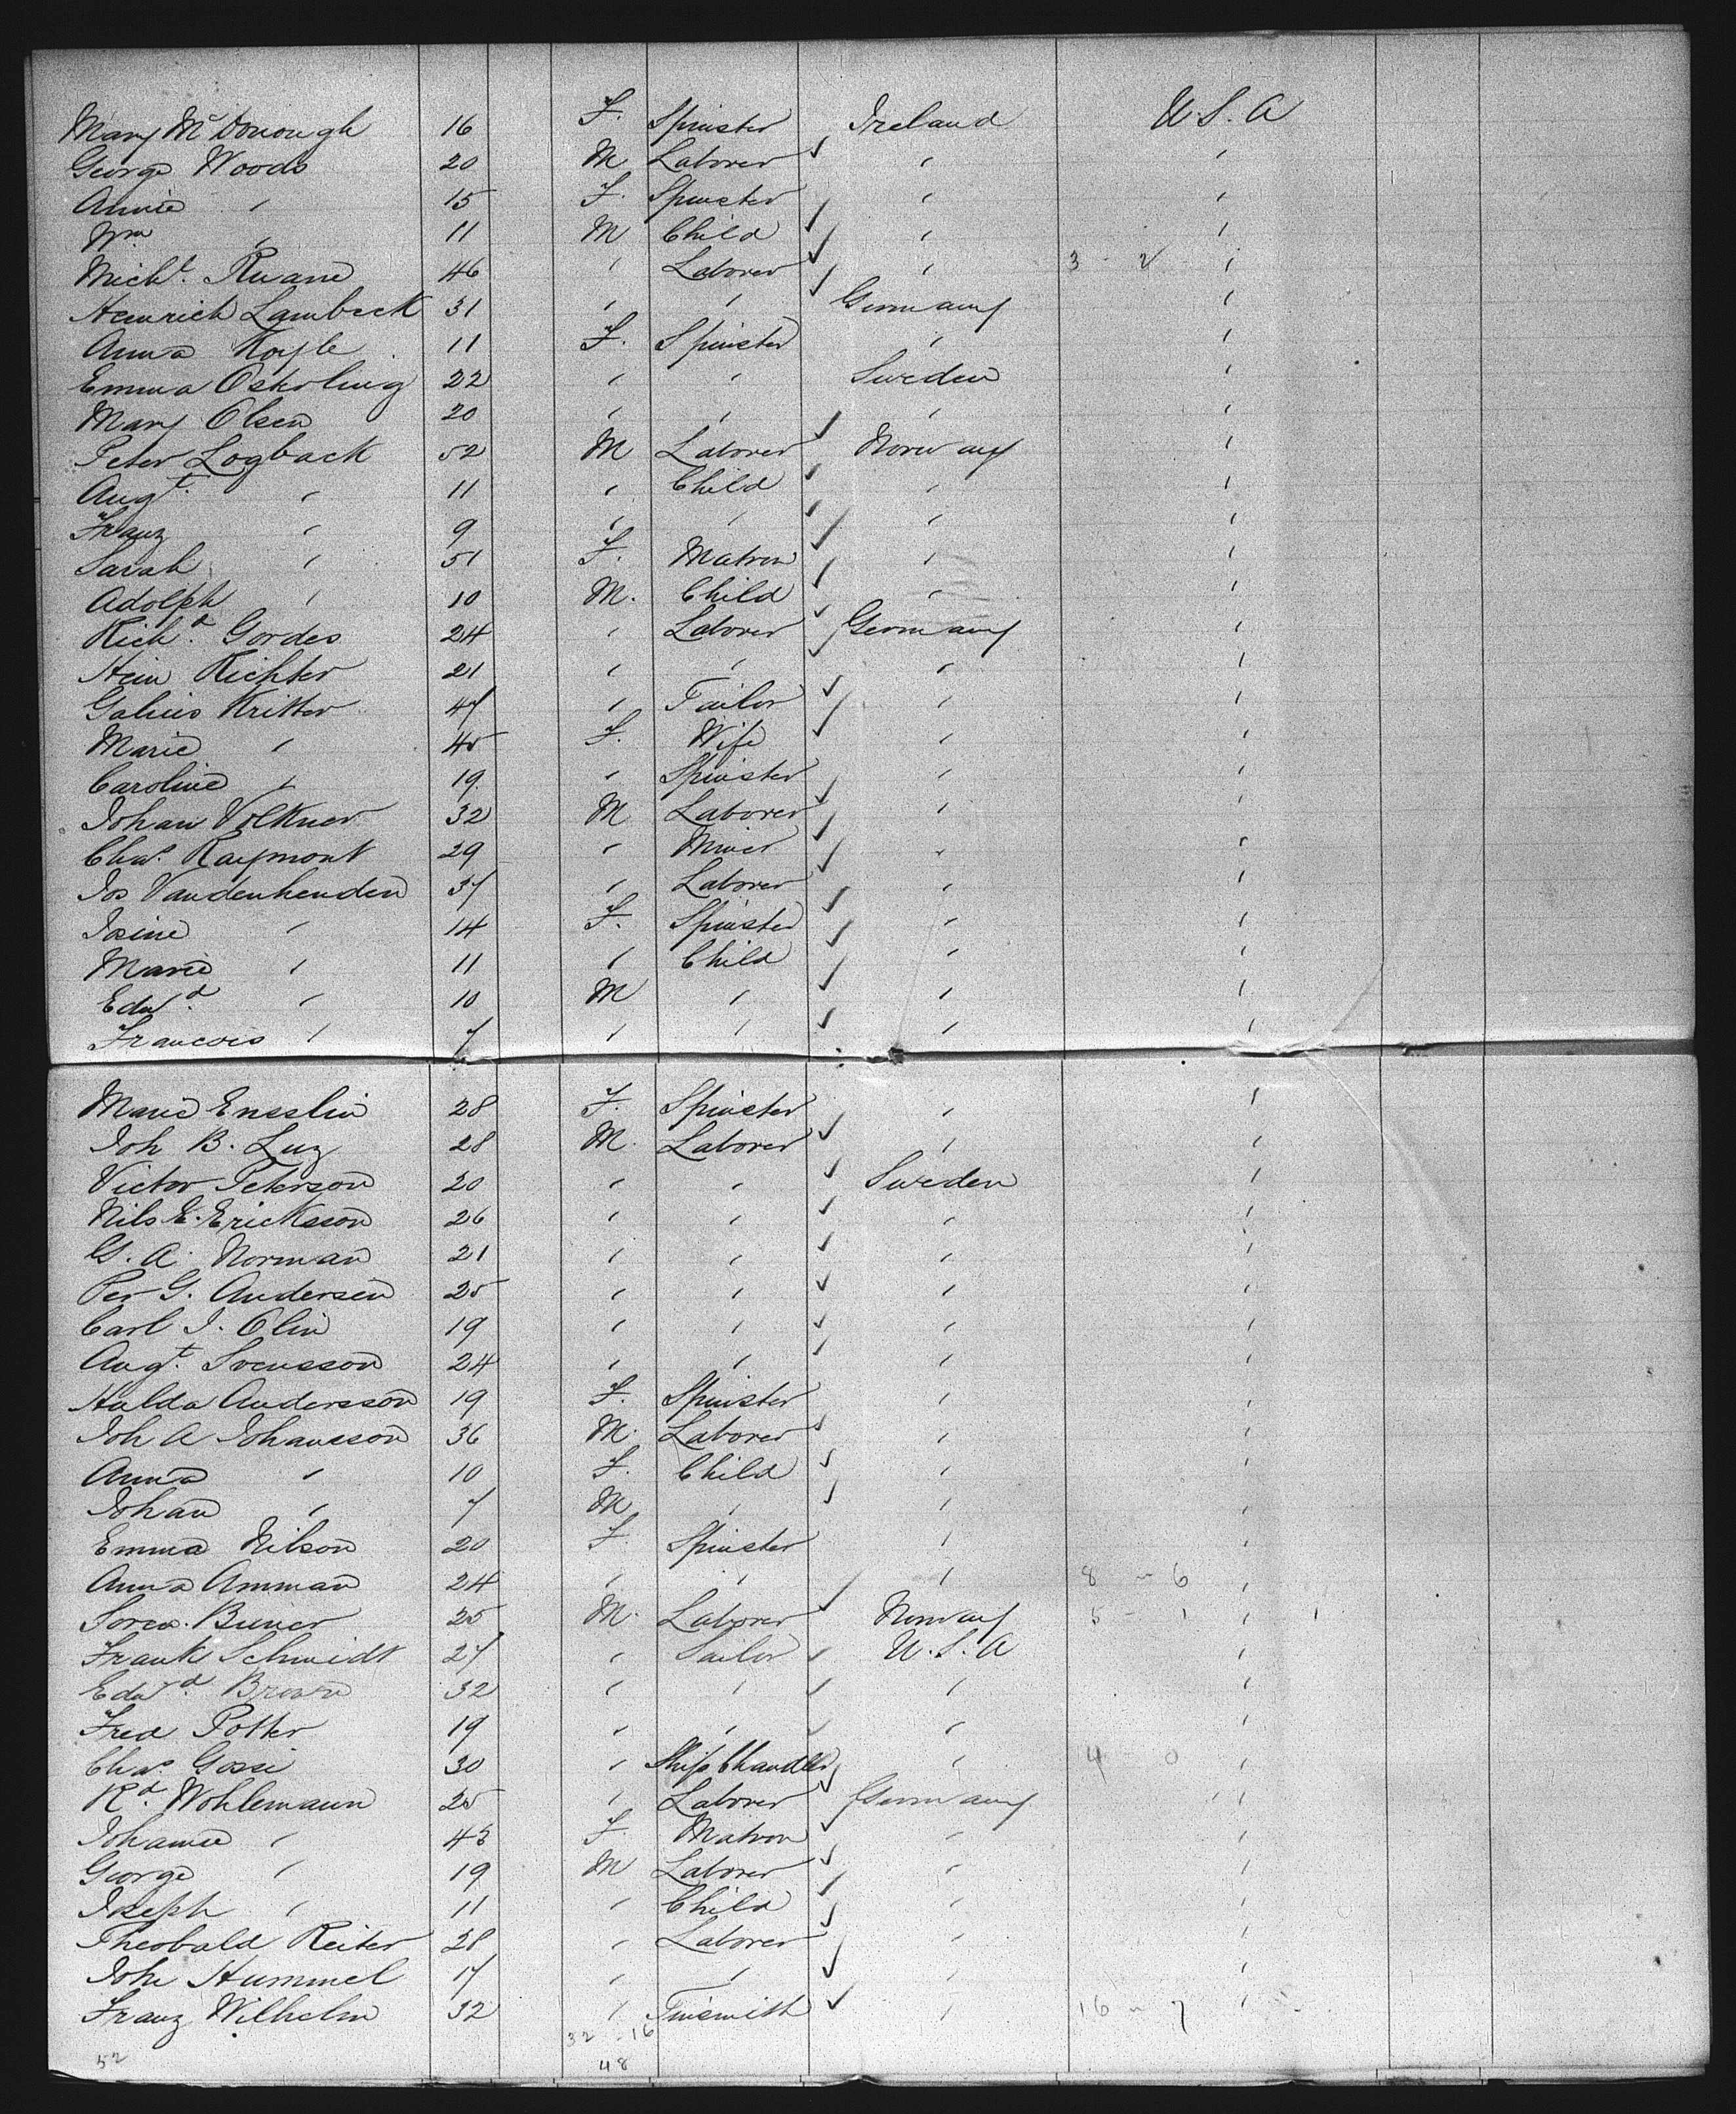 Mary McDonough 16 F. Spinster Ireland U.S.A
George Woods 20 M Laborer " "
Annie " 15 F. Spinster " "
Wm " 11 M Child " "
Michl. Ruane 46 " Laborer " 3 - 2 "
Heinrich Lambeck 31 " " Germany "
Anna Koyle 11 F. Spinster " "
Emma Osterling 22 " " Sweden "
Mary Olsen 20 " " " "
Peter Logback 52 M Laborer Norway "
Augt. " 11 " Child " "
Franz " 9 " " " "
Sarah " 51 F. Matron " "
Adolph " 10 M. Child " "
Richd. Gordes 24 " Laborer Germany "
Hein Richter 21 " " " "
Kritter 47 " Tailor " "
Marie " 45 F. Wife " "
Caroline " 19 " Spinster " "
Johan Volkner 32 M Laborer " "
Chas. Raymont 29 " Miner " "
Jos Vandenhenden 37 " Laborer " "
" 14 F. Spinster " "
Marie " 11 " Child " "
Edwd. " 10 M " " "
Francois " 7 " " " "
Marie Ensslin 28 F. Spinster " "
Joh B. Luz 28 M. Laborer " "
Victor Peterson 20 " " Sweden "
Nils E. Ericksson 26 " " " "
G. A. Norman 21 " " " "
Per G. Andersen 25 " " " "
Carl J. Olin 19 " " " "
Augt. Svensson 24 " " " "
Hulda Andersson 19 F. Spinster " "
Joh A Johansson 36 M. Laborer " "
Anna " 10 F. Child " "
Johan " 7 M " " "
Emma Nilson 20 F. Spinster " "
Anna Amman 24 " " " 8 - 6 "
25 M. Laborer Norway 5 - 1 " "
Frank Schmidt 27 " Sailor U.S.A "
Edwd. Brown 32 " " " "
Fred Potter 19 " " " "
Chas. 30 " Ship Chandler " 4 0 "
Rd. Wohlemann 25 " Laborer Germany "
" 43 F. Matron " "
George " 19 M Laborer " "
Joseph " 11 " Child " "
Theobald Reiter 28 " Laborer " "
Joh Hummel 17 " " " "
Franz Wilhelm 32 " Tinsmith " 16 - 7 "
32 - 16
52 48